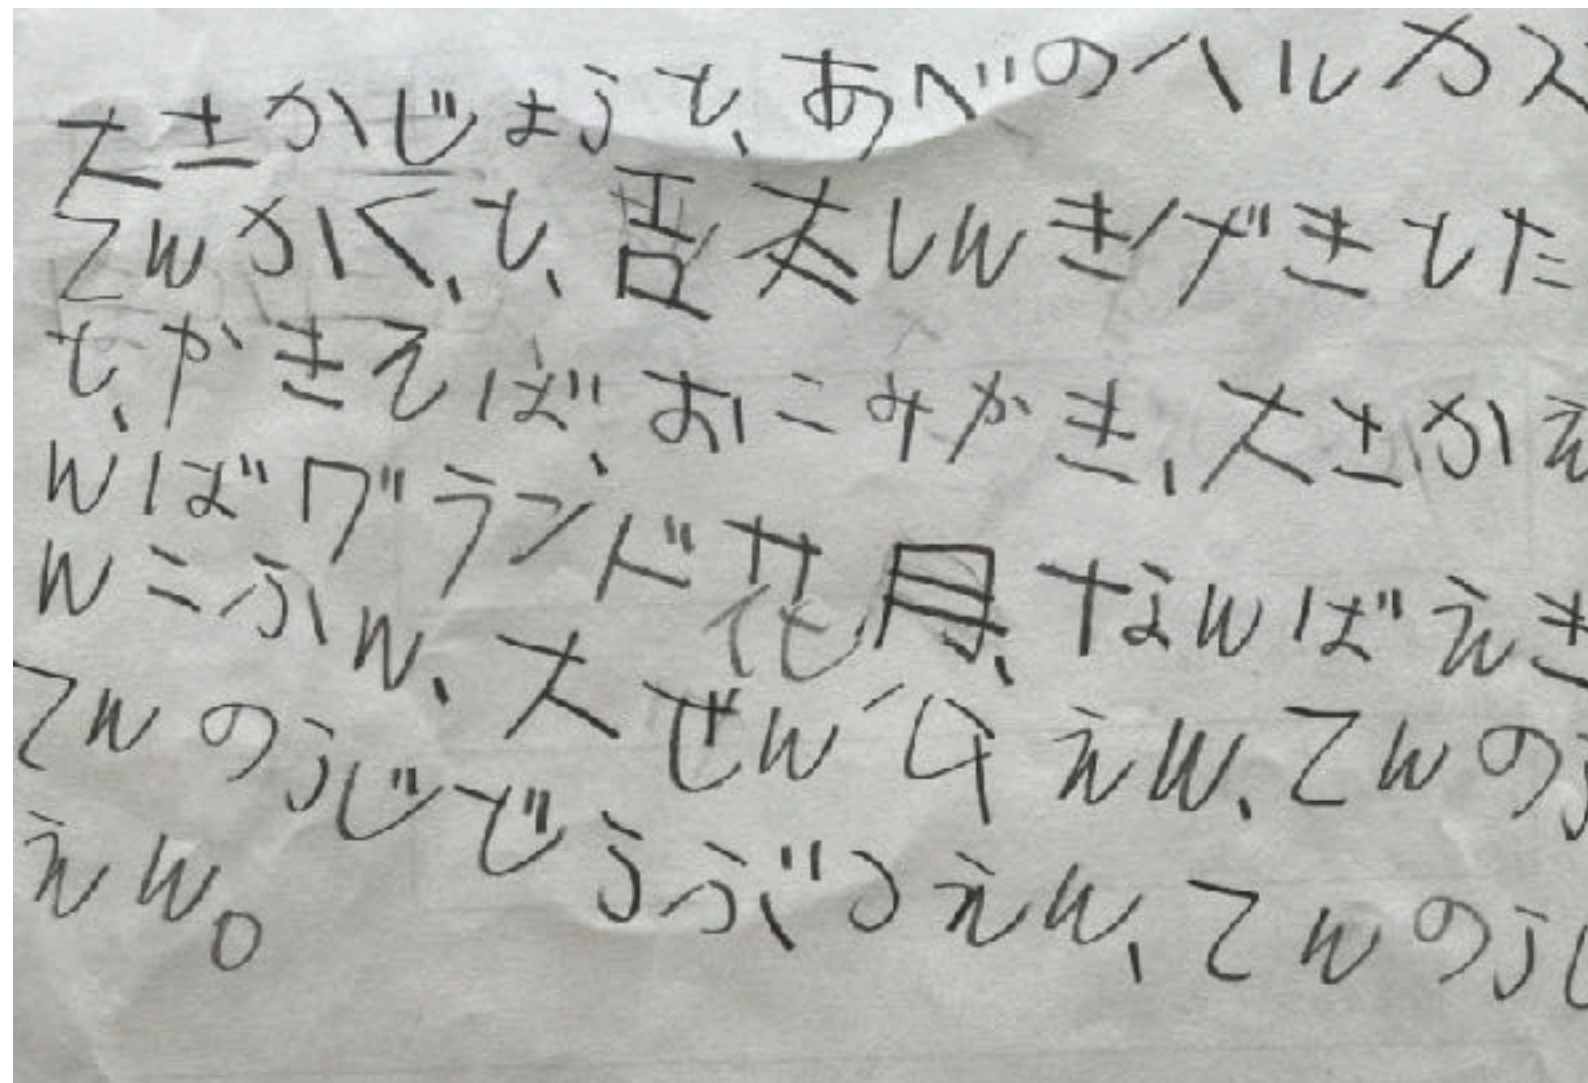 大さかじょうと、あべのハルカス
てんかく、と、吉本しんきげきとた
と、やきそば、おこみかき、大さかえ
んばグランド花月、なんばえき
んこふん、大ぜん公えん、てんのう
てんのうじどうぶつえん、てんのうじ
えん。